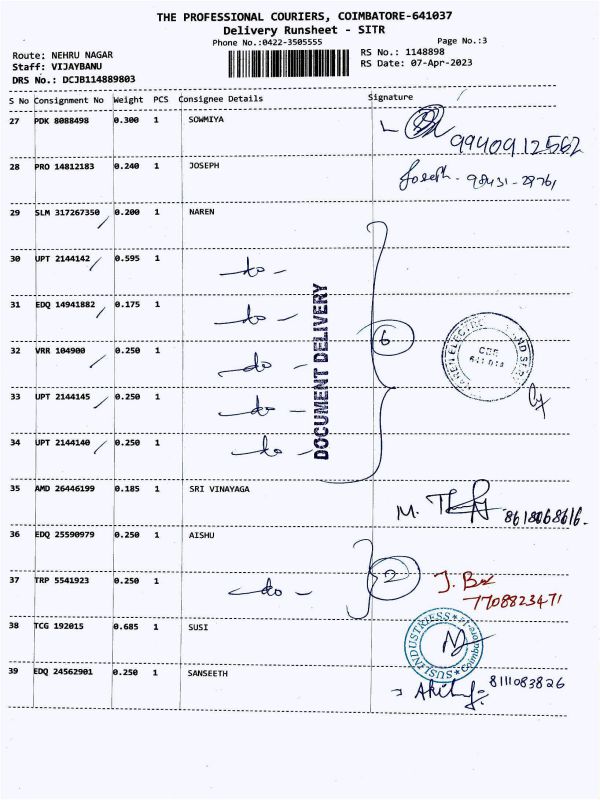 THE PROFESSIONAL COURIERS, COIMBATORE-641037
Delivery Runsheet - SITR
Phone No.:0422-3505555 Page No.:3
Route: NEHRU NAGAR RS No.: 1148898
Staff: VIJAYBANU RS Date: 07-Apr-2023
DRS No.: DCJB114889803
S No Consignment No Weight PCS Consignee Details Signature
27 PDK 8088498 0.300 1 SOWMIYA
9940912562
28 PRO 14812183 0.240 1 JOSEPH Joseph - 98431-29761
29 SLM 317267350 0.200 1 NAREN
30 UPT 2144142 0.595 1 -do-
31 EDQ 14941882 0.175 1 -do-
32 VRR 104900 0.250 1 -do- 6
33 UPT 2144145 0.250 1 -do-
34 UPT 2144140 0.250 1 -do-
DOCUMENT DELIVERY
NAREN ELECTRIC AND
CBE
35 AMD 26446199 0.185 1 SRI VINAYAGA M.
8618068616.
36 EDQ 25590979 0.250 1 AISHU
37 TRP 5541923 0.250 1 -do- 2 J.
7708823471
38 TCG 192015 0.685 1 SUSI
SUSI INDUSTRIESS Coimbatore-14
39 EDQ 24562901 0.250 1 SANSEETH 8111083826